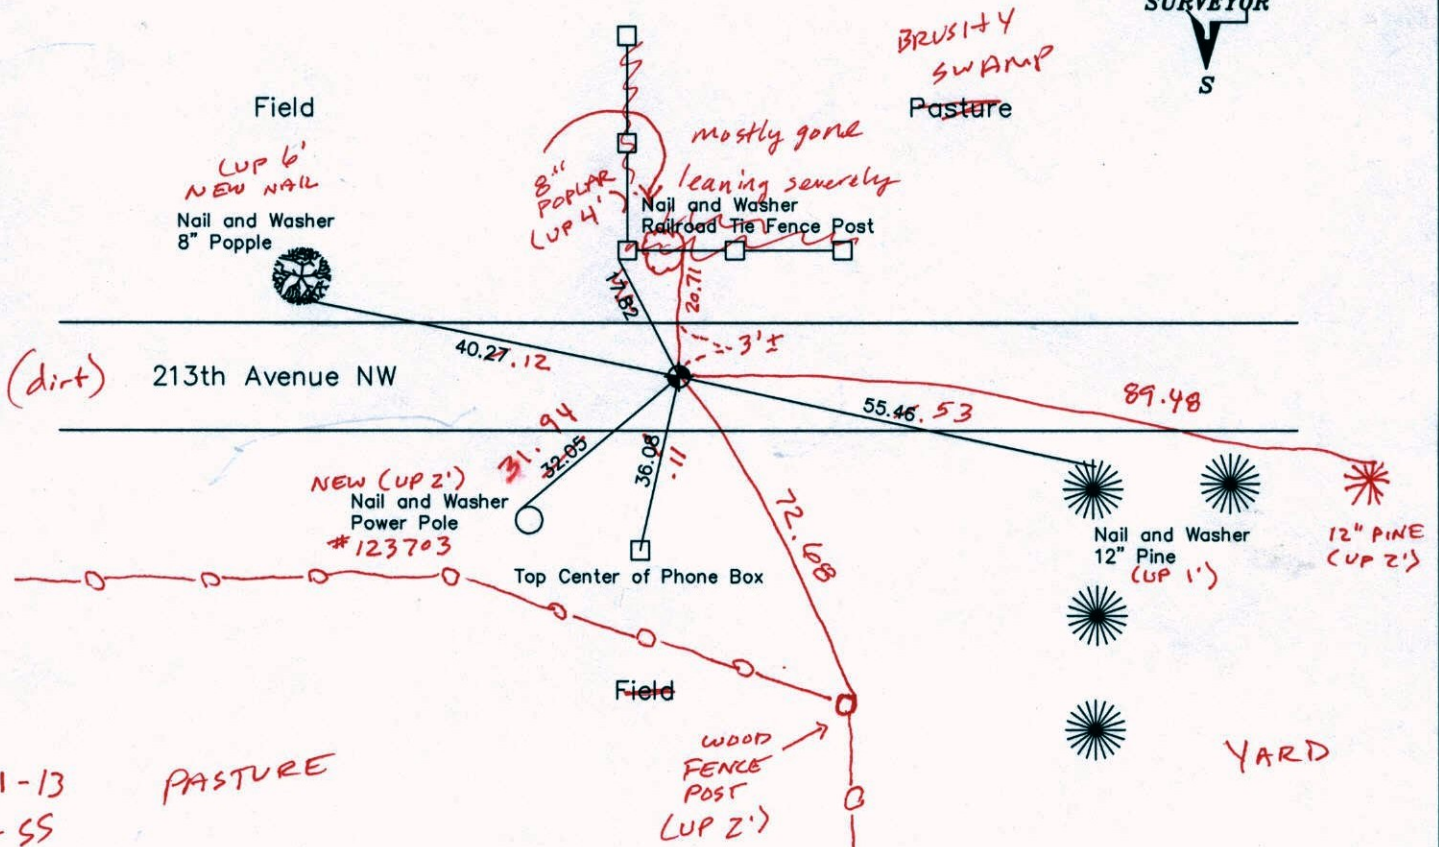 SURVEYOR
S
BRUSHY
SWAMP
Pasture
Field
mostly gone
leaning severely
(UP 6'
NEW NAIL
Nail and Washer
8" Popple
8"
POPLAR
(UP 4')
Nail and Washer
Railroad Tie Fence Post
17.82
20.71
3'±
(dirt)
213th Avenue NW
40.27 .12
55.46 .53
89.48
31.94
32.05
36.08
.11
72.68
NEW (UP 2')
Nail and Washer
Power Pole
#123703
Top Center of Phone Box
Nail and Washer
12" Pine
(UP 1')
12" PINE
(UP 2')
Field
WOOD
FENCE
POST
(UP 2')
PASTURE
YARD
1-13
SS